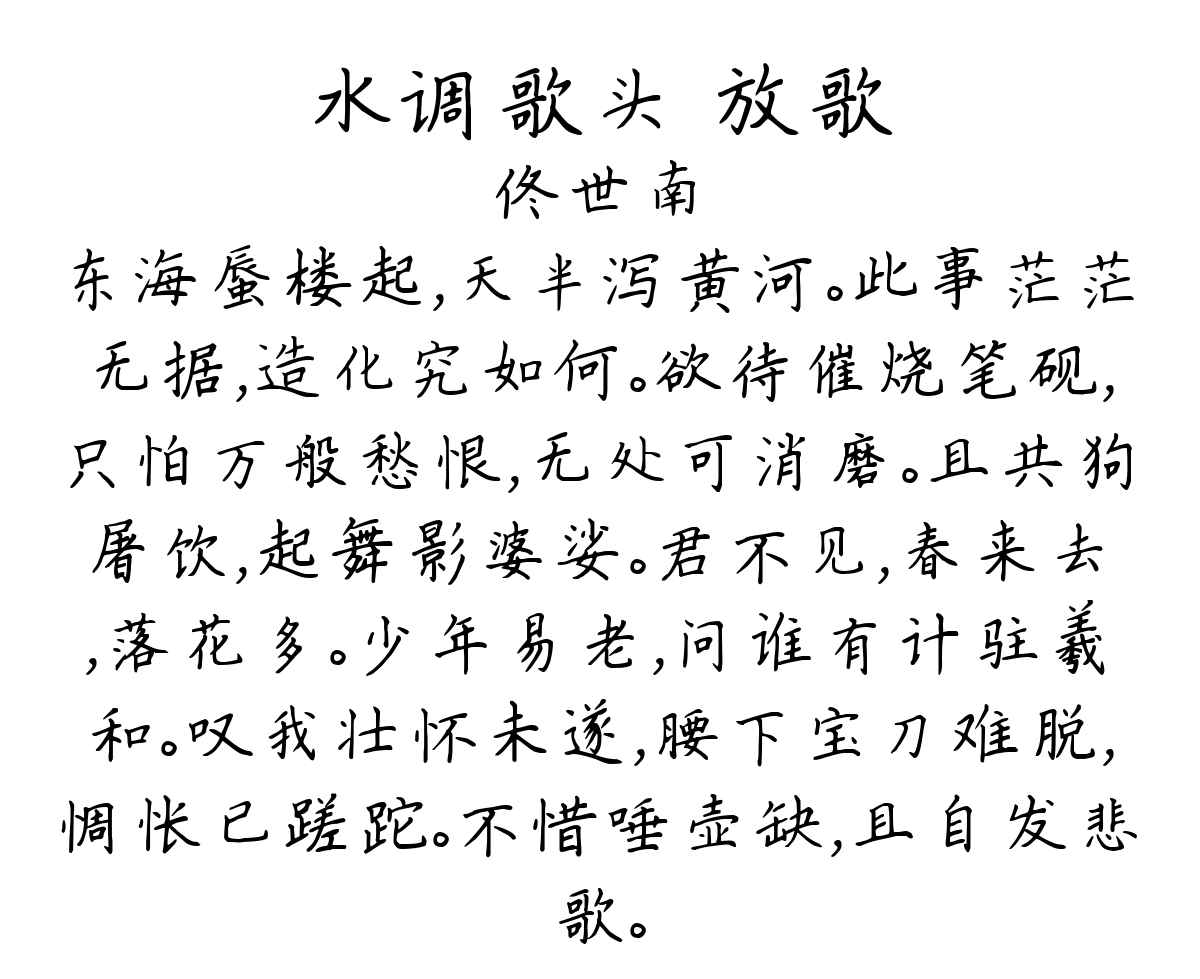 水调歌头 放歌
佟世南
东海蜃楼起,天半泻黄河。此事茫茫
无据,造化究如何。欲待催烧笔砚,
只怕万般愁恨,无处可消磨。且共狗
屠饮,起舞影婆娑。君不见,春来去
,落花多。少年易老,问谁有计驻羲
和。叹我壮怀未遂,腰下宝刀难脱,
惆怅已蹉跎。不惜唾壶缺,且自发悲
歌。